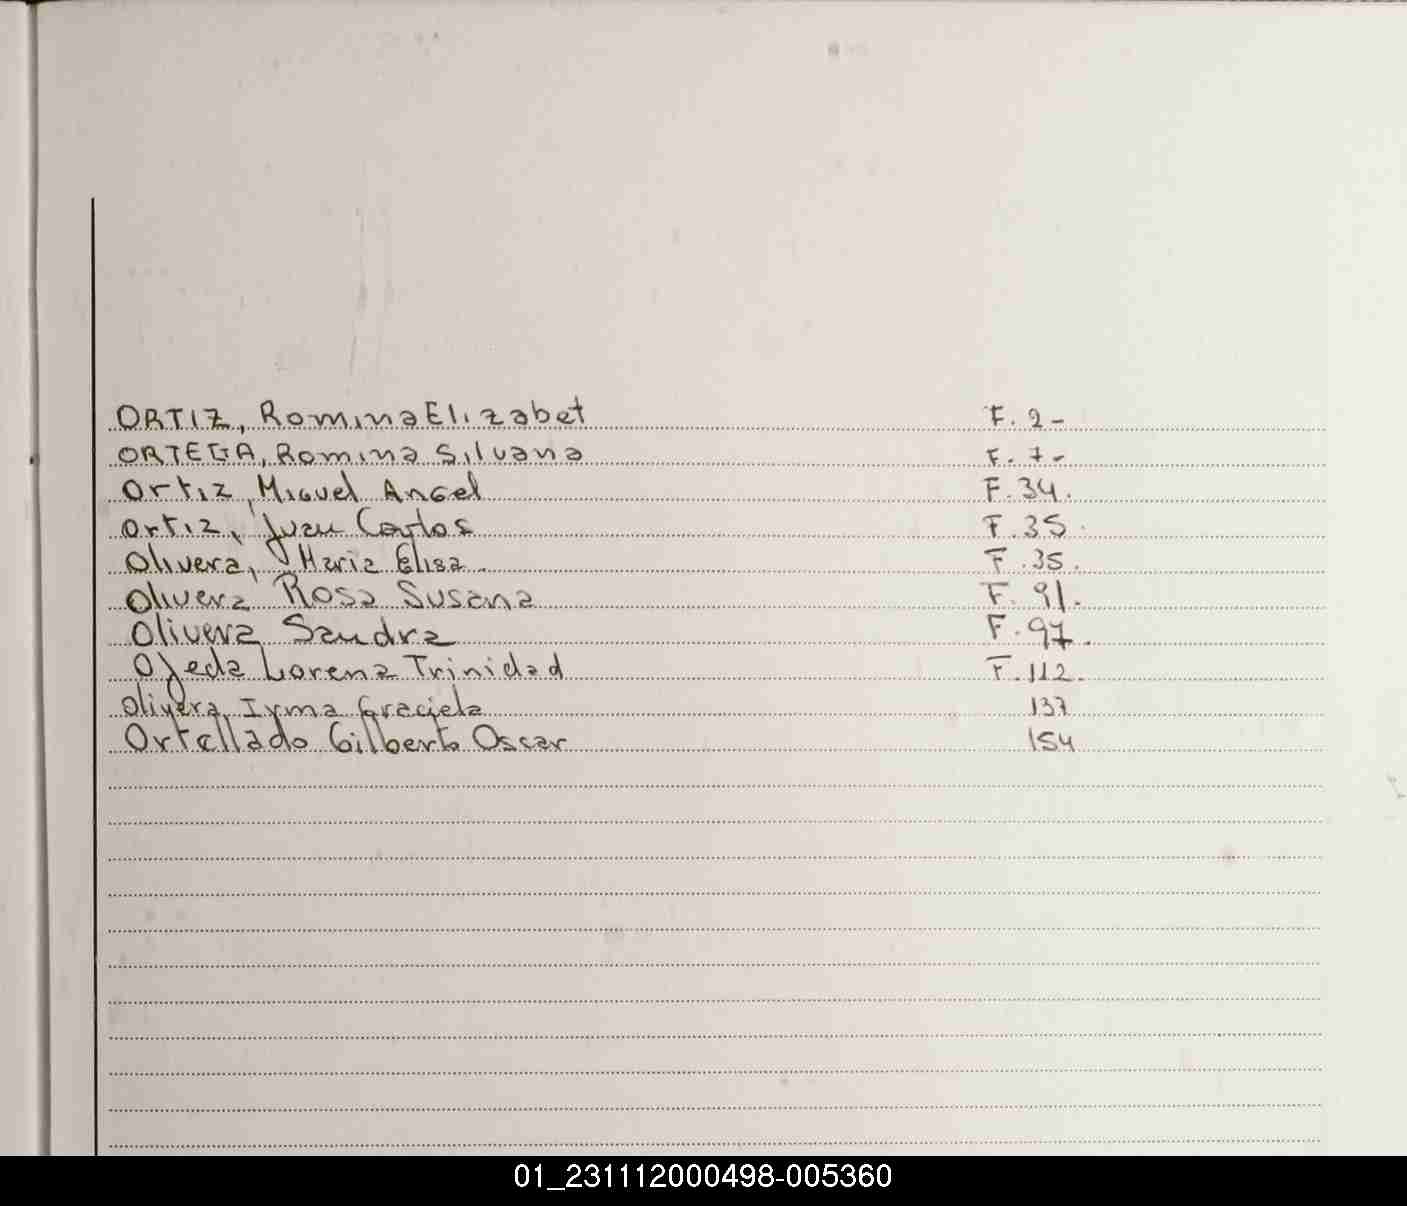 ORTIZ, Romina Elizabet F. 2-
ORTEGA, Romina Silvana F. 7-
Ortiz, Miguel Angel F. 34.
Ortiz, Juan Carlos F. 35.
Olivera, Maria Elisa. F. 35.
Olivera Rosa Susana F. 91.
Olivera Sandra F. 97.
Ojeda Lorena Trinidad F. 112.
Olivera, Irma Graciela 137
Ortellado Gilberto Oscar 154
01_231112000498-005360